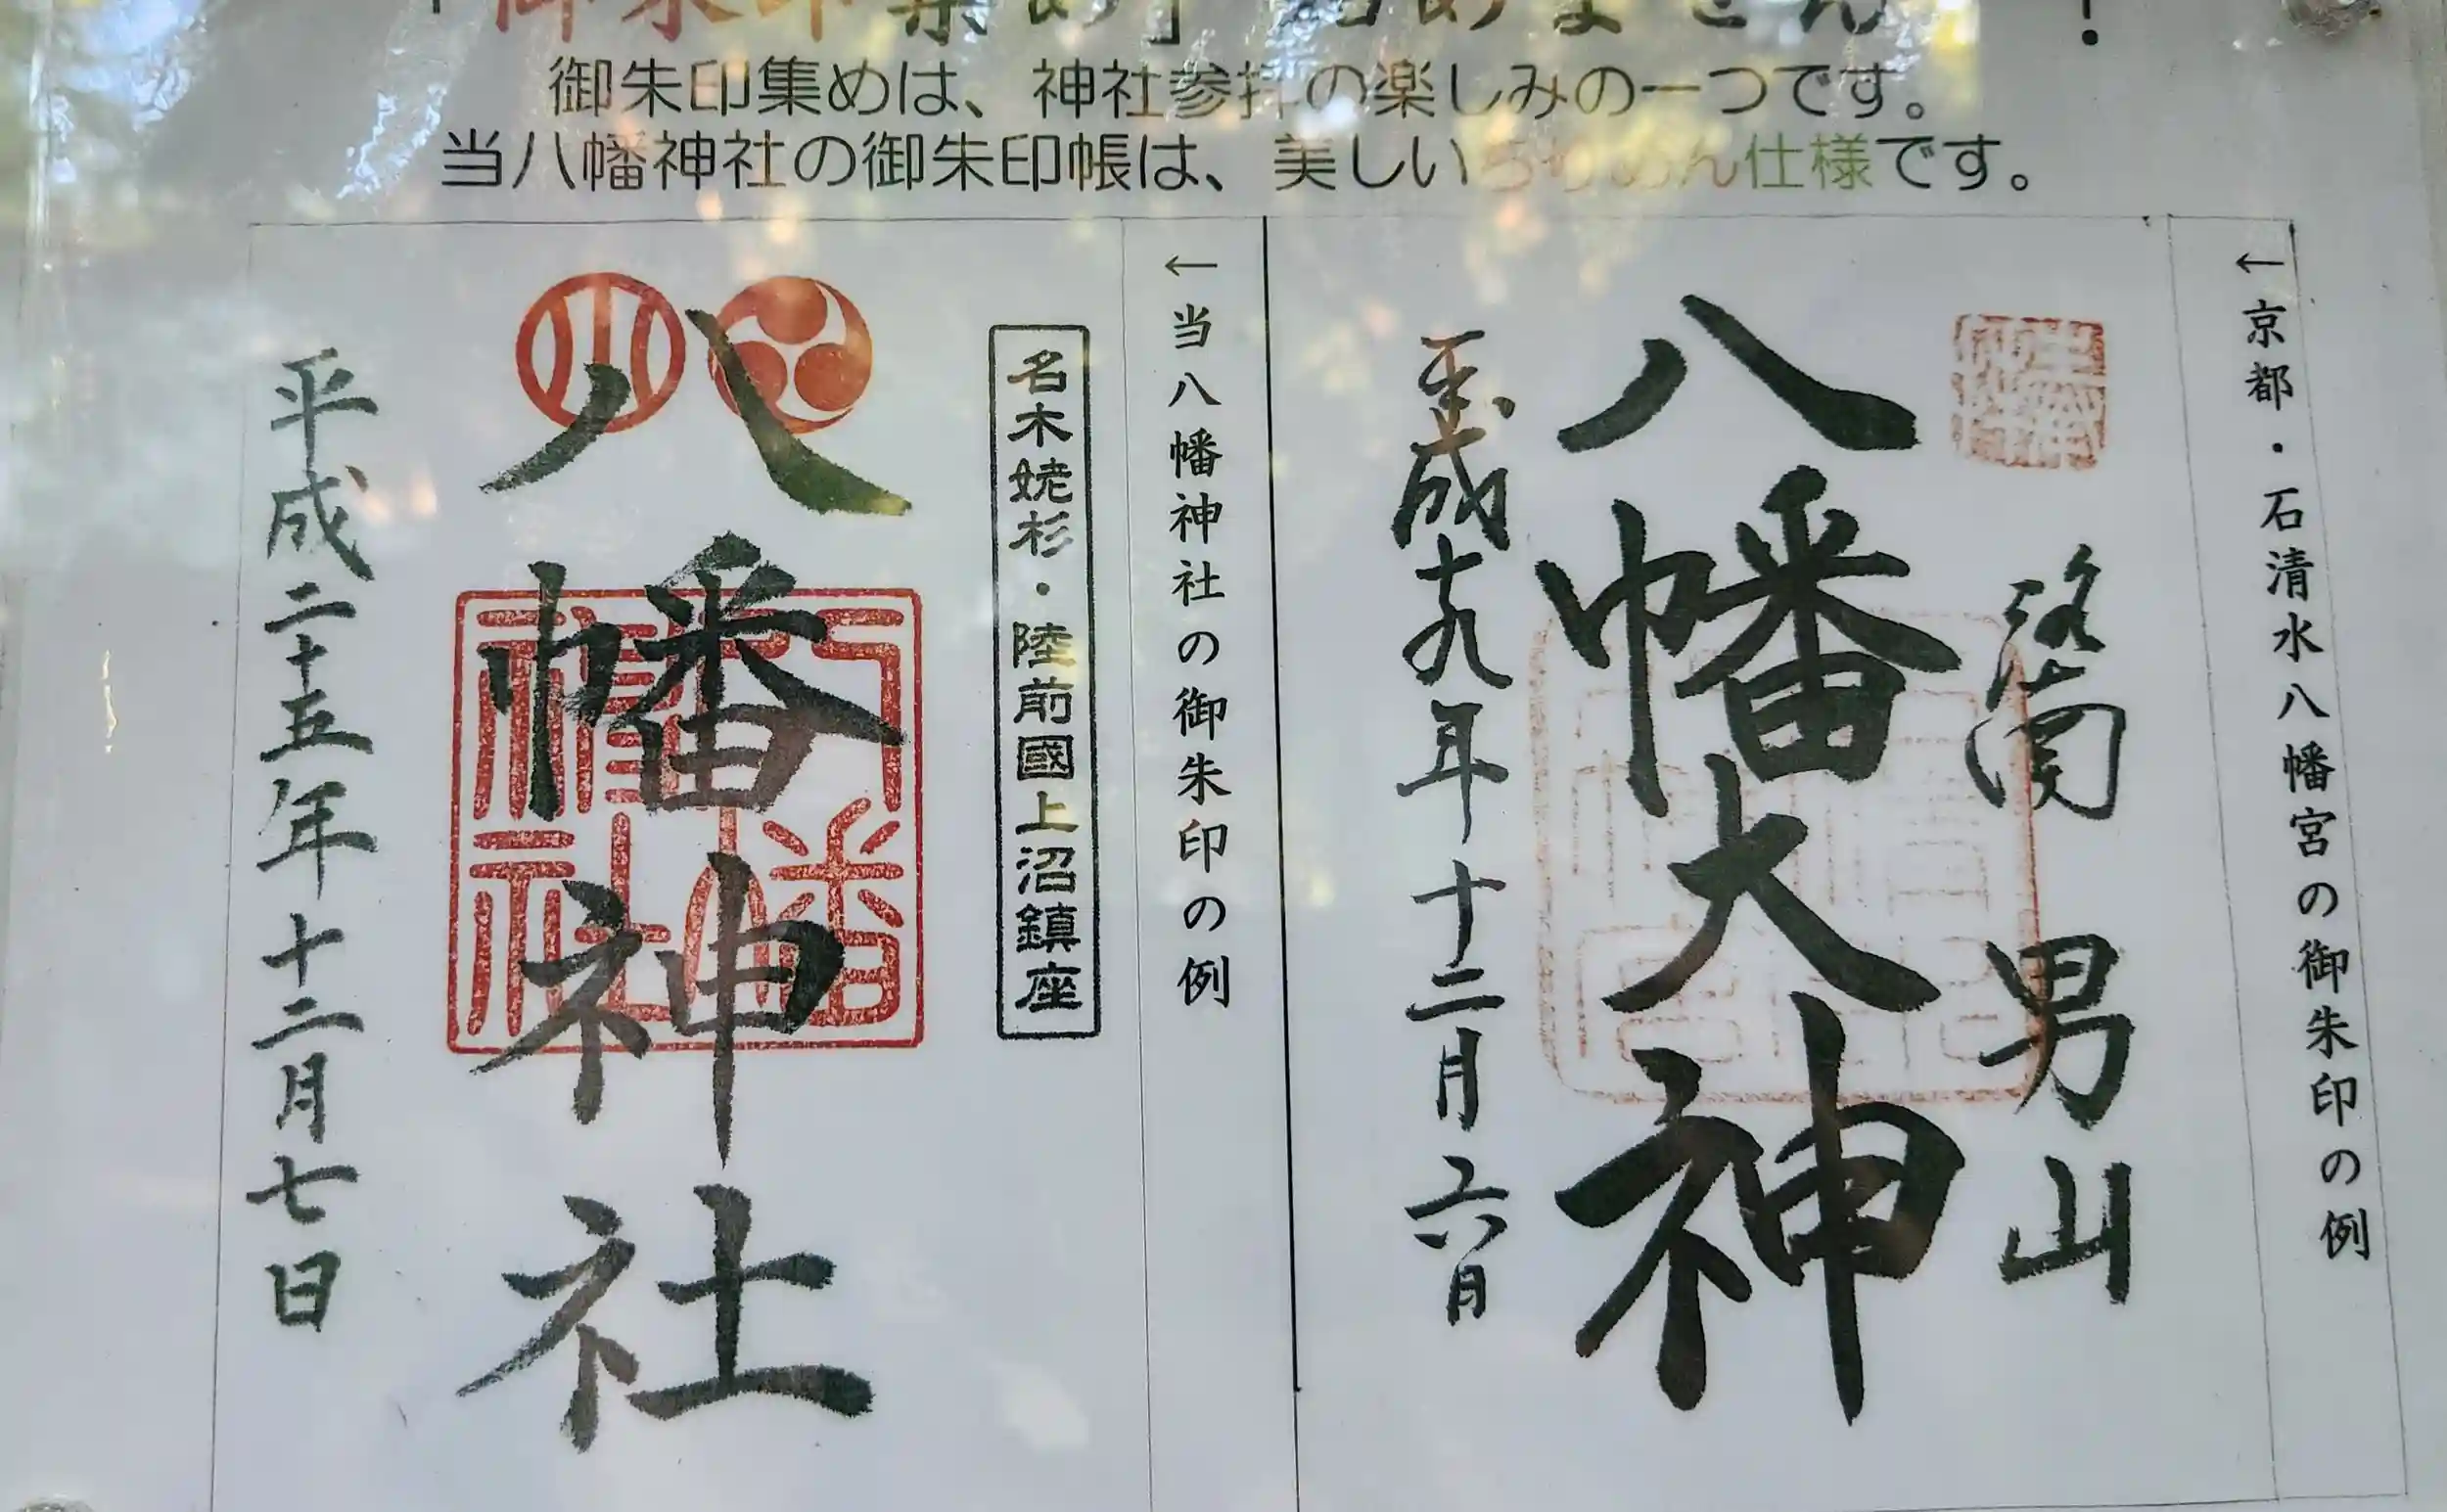 「御朱印集め」始めませんか!
御朱印集めは、神社参拝の楽しみの一つです。
当八幡神社の御朱印帳は、美しいちりめん仕様です。
←京都・石清水八幡宮の御朱印の例
洛南 男山
八幡大神
平成十九年十二月六日
←当八幡神社の御朱印の例
名木姥杉・陸前國上沼鎮座
八幡神社
八幡神社
平成二十五年十二月七日